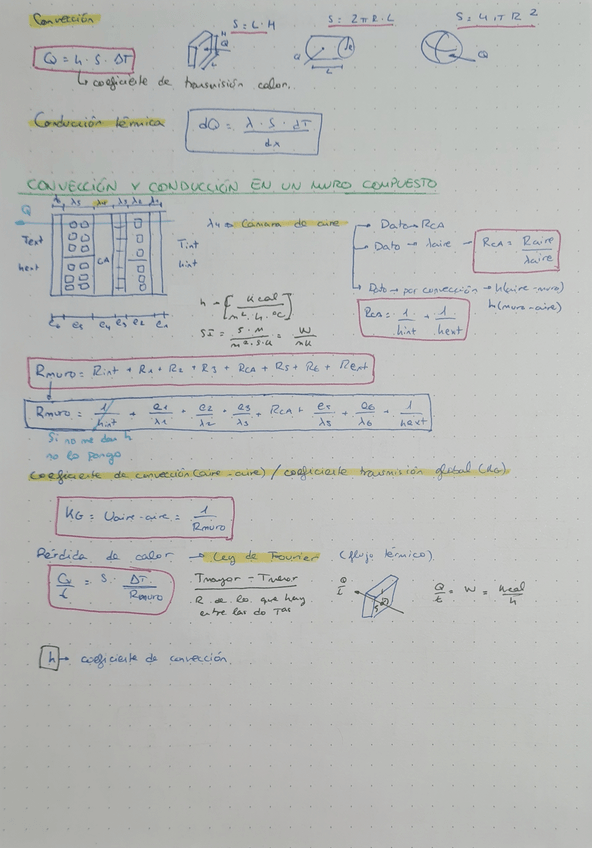 Convección
S = L · H
S = 2πR · L
S = 4πR²
Q = h · S · ΔT
H
Q
L
Q
R
L
Q
↳ coeficiente de transmisión calor.
Conducción térmica
dQ = λ · S · dT / dx
CONVECCIÓN Y CONDUCCIÓN EN UN MURO COMPUESTO
λ6 λ5 λ4 λ3 λ2 λ1
Q
Text
hext
CA
Tint
hint
e6 e5 e4 e3 e2 e1
λ4 → Cámara de aire
→ Dato → RCA
→ Dato → λaire → RCA = Raire / λaire
→ Dato → por convección → h(aire-muro)
h(muro-aire)
RCA = 1/hint + 1/hext
h → [Kcal / m² · h · ºC]
SI =
Rmuro = Rint + R1 + R2 + R3 + RCA + R5 + R6 + Rext
Rmuro = 1/hint + e1/λ1 + e2/λ2 + e3/λ3 + RCA + e5/λ5 + e6/λ6 + 1/hext
Si no me dan h
no lo pongo
Coeficiente de convección (aire-aire) / coeficiente transmisión global
KG = Uaire-aire = 1 / Rmuro
Pérdida de calor → Ley de Fourier (flujo térmico)
Q/t = S · ΔT / Rmuro
Tmayor - Tmenor
R de lo que hay
entre las do Tas
Q/t
S
Q/t = W = Kcal/h
h → coeficiente de convección.